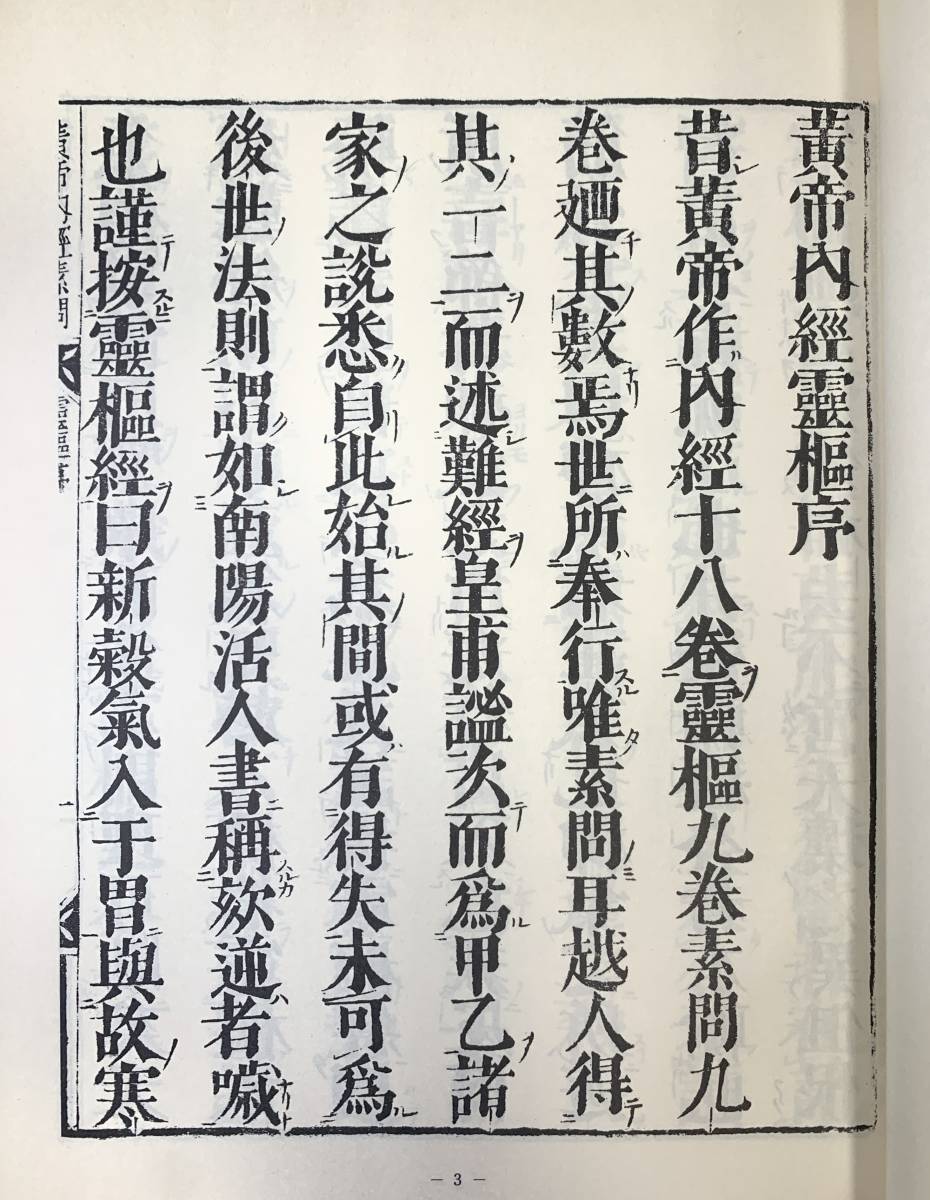 黃帝內經靈樞序
昔黃帝作內經十八卷靈樞九卷素問九
卷廼其數焉世所奉行唯素問耳越人得
其一二而述難經皇甫謐次而爲甲乙諸
家之說悉自此始其間或有得失未可爲
後世法則謂如南陽活人書稱欬逆者噦
也謹按靈樞經曰新穀氣入于胃與故寒
黃帝內經素問
靈樞序
一
— 3 —